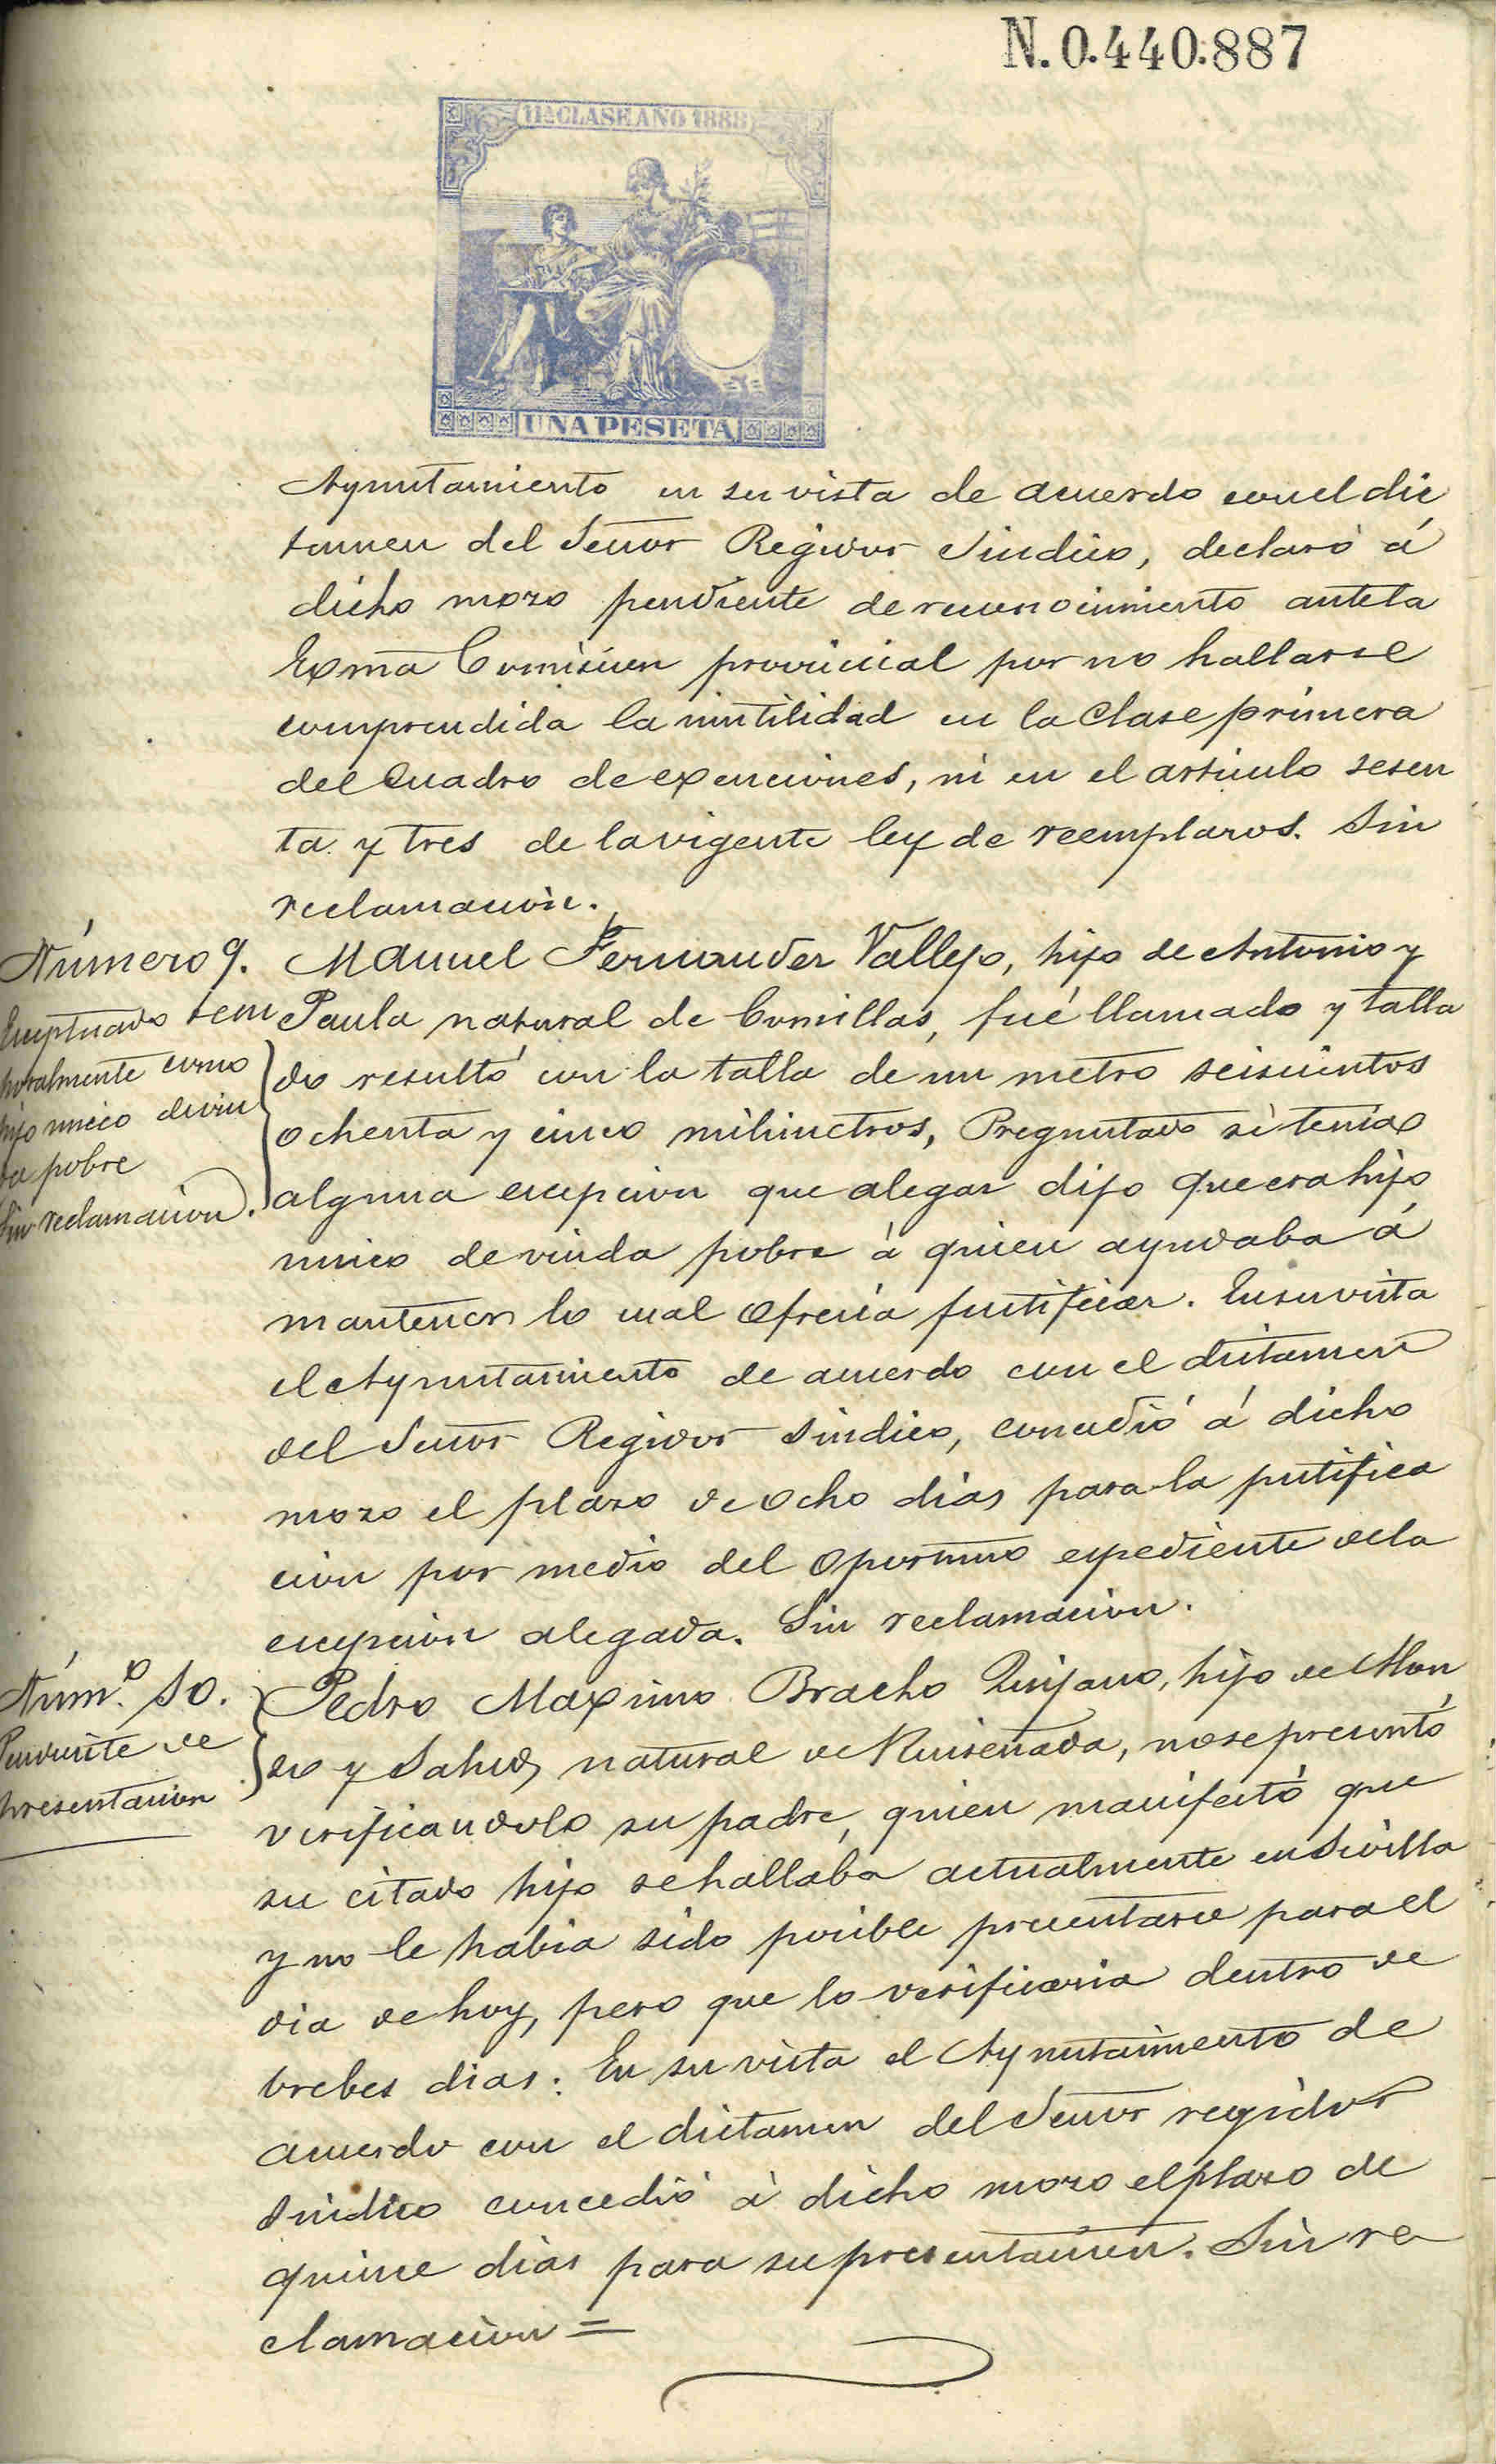 N.0.440.887
11ª CLASE AÑO 1888
UNA PESETA
Ayuntamiento en su vista de acuerdo con el dic
tamen del Señor Regidor Sindico, declaró á
dicho mozo pendiente de reconocimiento ante la
Exma Comision provincial por no hallarse
comprendida la inutilidad en la Clase primera
del Cuadro de exenciones, ni en el articulo sesen
ta y tres de la vigente ley de reemplazos. Sin
reclamacion.
Número 9.
Exceptuado tem
poralmente como
hijo unico de viu
da pobre
Sin reclamacion.
Manuel Fernandez Vallejo, hijo de Antonio y
Paula natural de Comillas, fué llamado y talla
do resultó con la talla de un metro seiscientos
ochenta y cinco milimetros, Preguntado si tenia
alguna excepcion que alegar dijo que era hijo
unico de viuda pobre á quien ayudaba á
mantener lo cual ofrecia justificar. En su vista
el Ayuntamiento de acuerdo con el dictamen
del Señor Regidor Sindico, concedió á dicho
mozo el plazo de ocho dias para la justifica
cion por medio del oportuno expediente de la
excepcion alegada. Sin reclamacion.
Núm.º 10.
Pendiente de
presentacion
Pedro Maximo Bracho Quijano, hijo de Man
so y Salud, natural de Ruiseñada, no se presentó
verificandolo su padre, quien manifestó que
su citado hijo se hallaba actualmente en Sevilla
y no le habia sido posible presentarse para el
dia de hoy, pero que lo verificaria dentro de
brebes dias: En su vista el Ayuntamiento de
acuerdo con el dictamen del Señor regidor
Sindico concedió á dicho mozo el plazo de
quince dias para su presentacion. Sin re
clamacion =